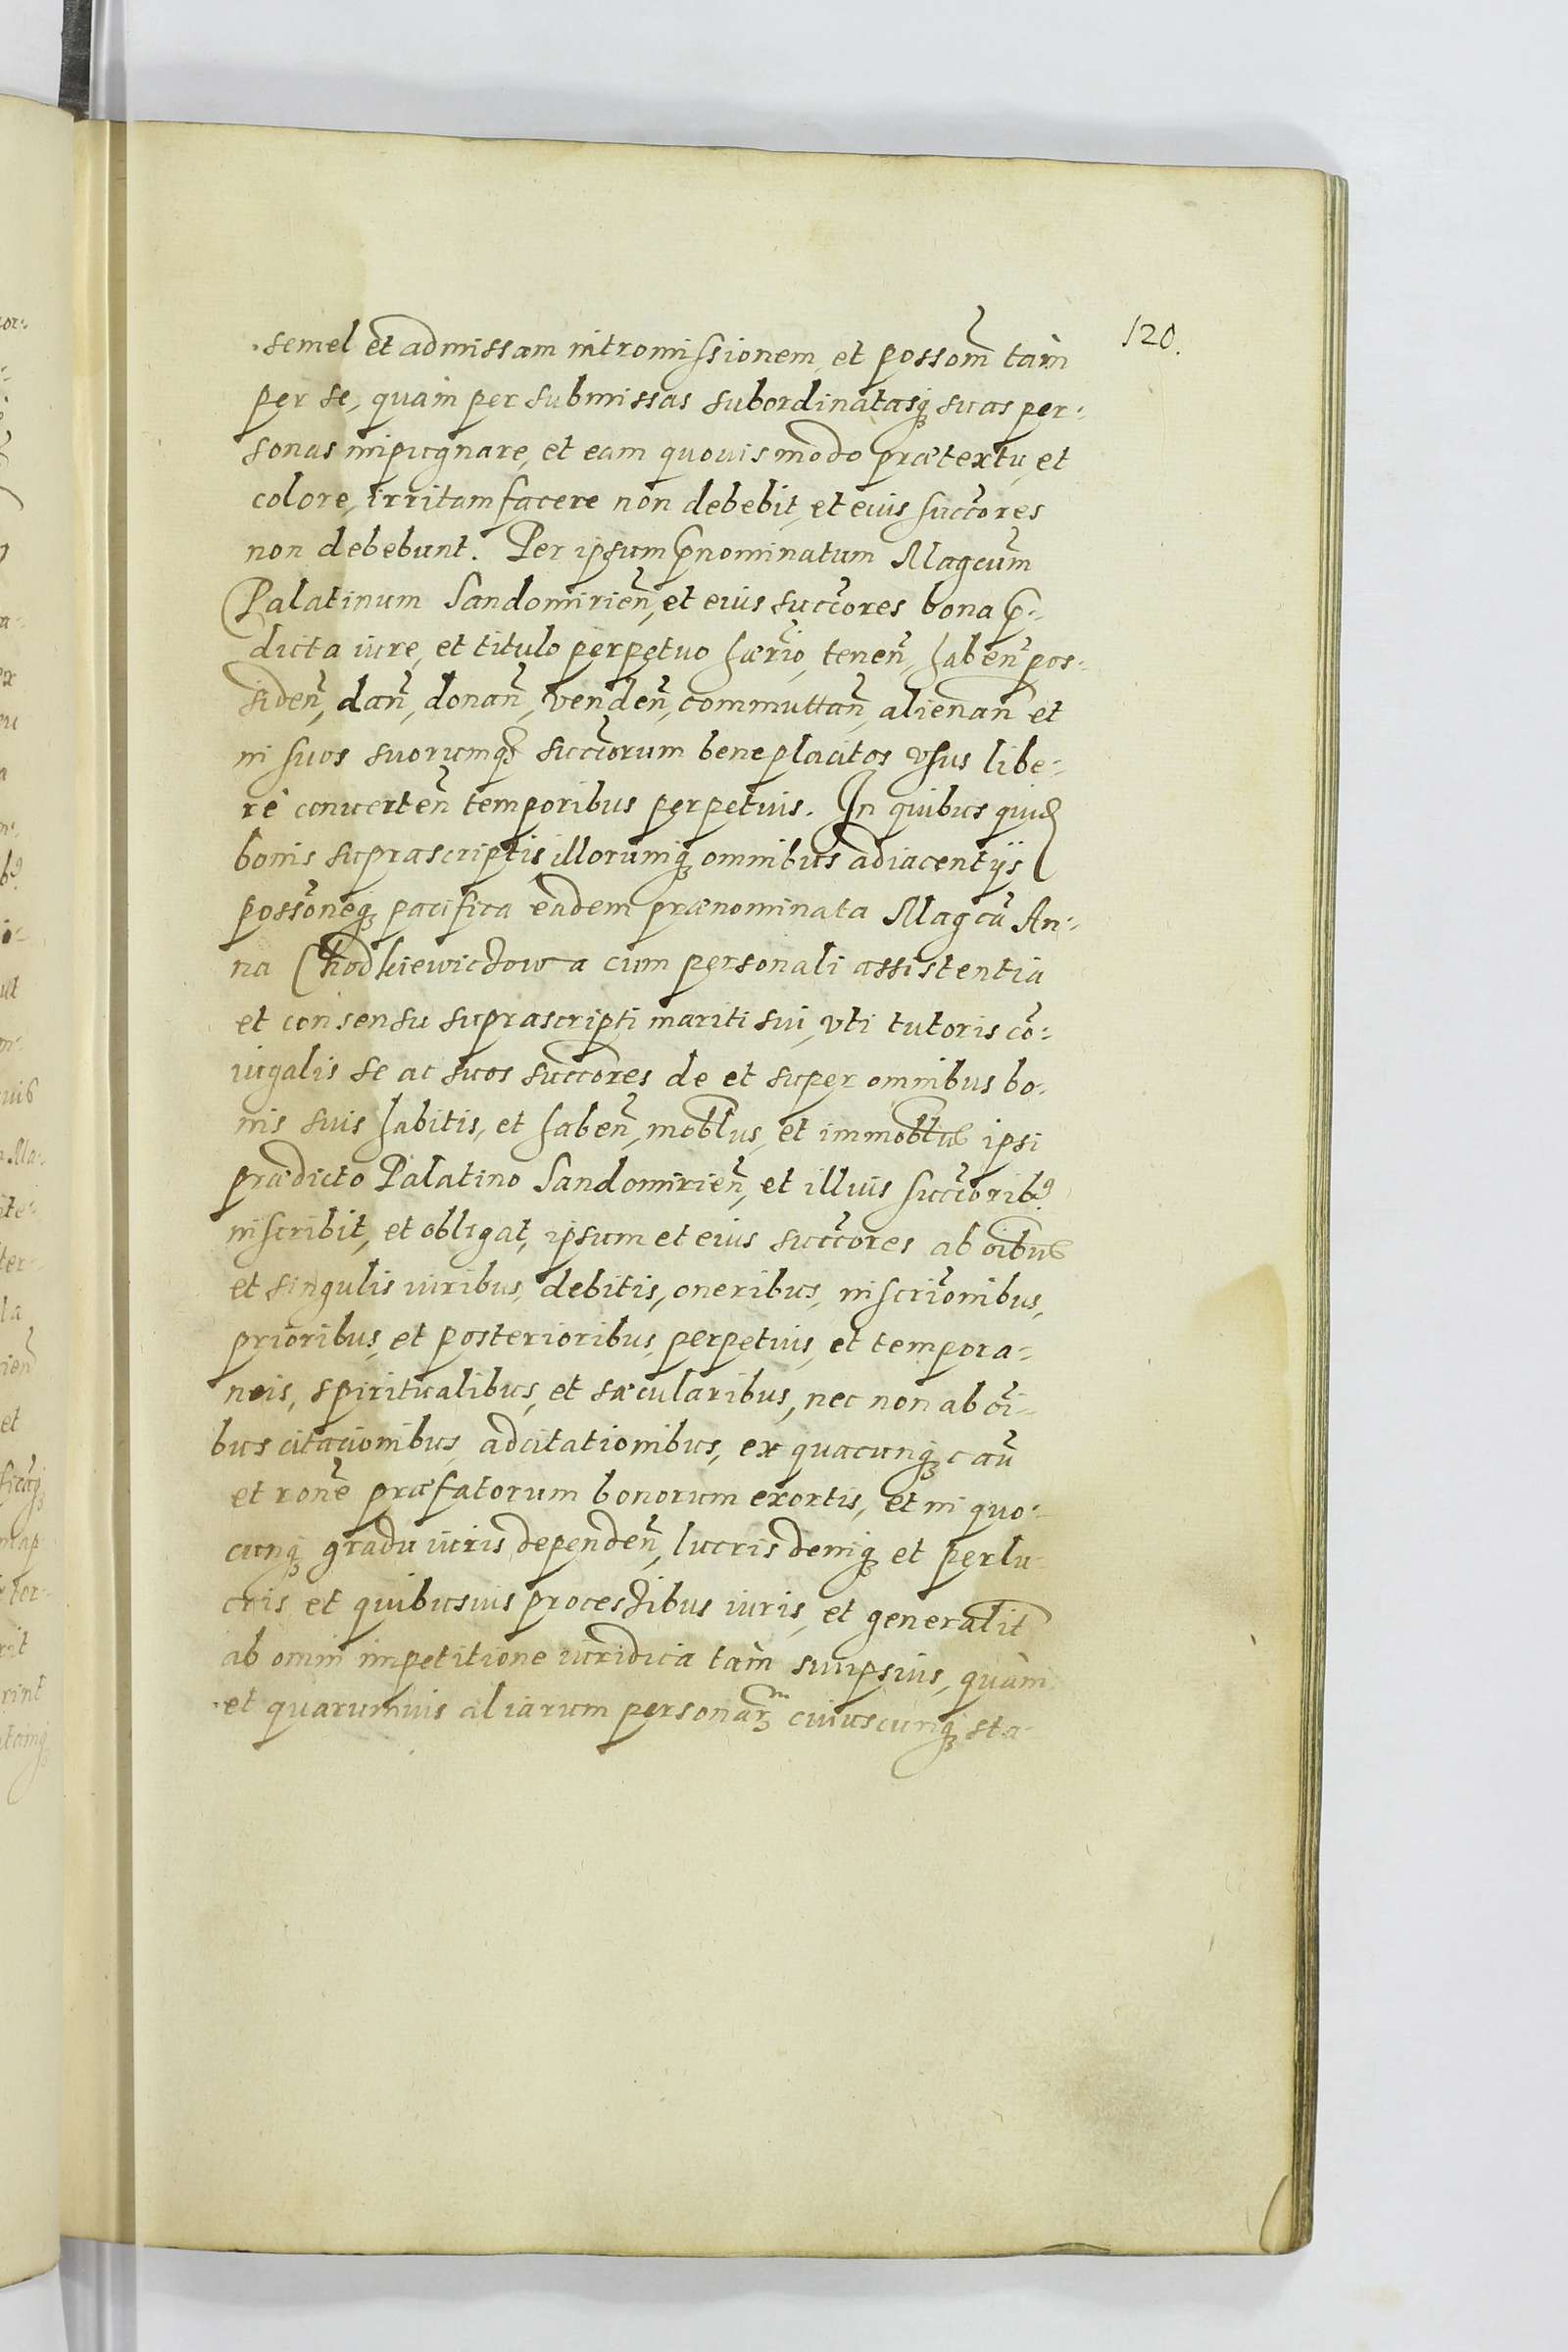 120.
semel et admissam intromissionem, et possom̃ tam̀
per se, quam̀ per submissas subordinatasq; suas per-
sonas impugnare, et eam quouis modo prætextu, et
colore, irritam facere non debebit, et eius succ̃ores
non debebunt. Per ipsum p̃nominatum Magcum̃
Palatinum Sandomirieñ, et eius succ̃ores bona p̃-
dicta iure, et titulo perpetuo hæri͂o, teneñ, habeñ pos-
sideñ, dañ, donañ, vendeñ, commuttañ, alienañ et
in suos suorumq; succ̃orum beneplacitos vsus libe-
rè conuerteñ temporibus perpetuis. In quibus quid
bonis suprascriptis, illorumq; omnibus adiacentijs
poss̃oneq; pacifica eadem prænominata Magcã An-
na Chodkiewiczowa cum personali assistentia
et consensu suprascripti mariti sui, vti tutoris cõ-
iugalis se ac suos succ̃ores de et super omnibus bo-
nis suis habitis, et habeñ, mobl̃us, et immobl̃us ipsi
prædicto Palatino Sandomirieñ, et illius succ̃orib9
inscribit, et obligat, ipsum et eius succ̃ores ab oĩbus
et singulis iuribus, debitis, oneribus, inscri͂onibus,
prioribus, et posterioribus, perpetuis, et tempora-
neis, spiritualibus, et sæcularibus, nec non ab oĩ-
bus citacionibus, adcitationibus, ex quacunq; cau͂
et roñe præfatorum bonorum exortis, et in quo-
cunq; gradu iuris dependeñ, lucris deniq; et perlu-
cris et quibusuis processibus iuris, et generalit̃
ab omni impetitione iuridica tam̀ suiipsius, quàm
et quarumuis aliarum personar̃m cuiuscunq; sta-